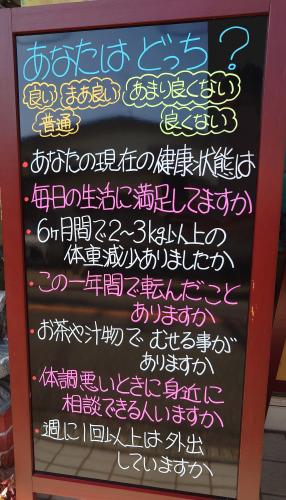 あなたは どっち？
良い まあ良い あまり良くない
普通 良くない
・あなたの現在の健康状態は
・毎日の生活に満足してますか
・6ヶ月間で2〜3kg以上の
体重減少ありましたか
・この一年間で転んだこと
ありますか
・お茶や汁物で むせる事が
ありますか
・体調悪いときに身近に
相談できる人いますか
・週に1回以上は 外出
していますか